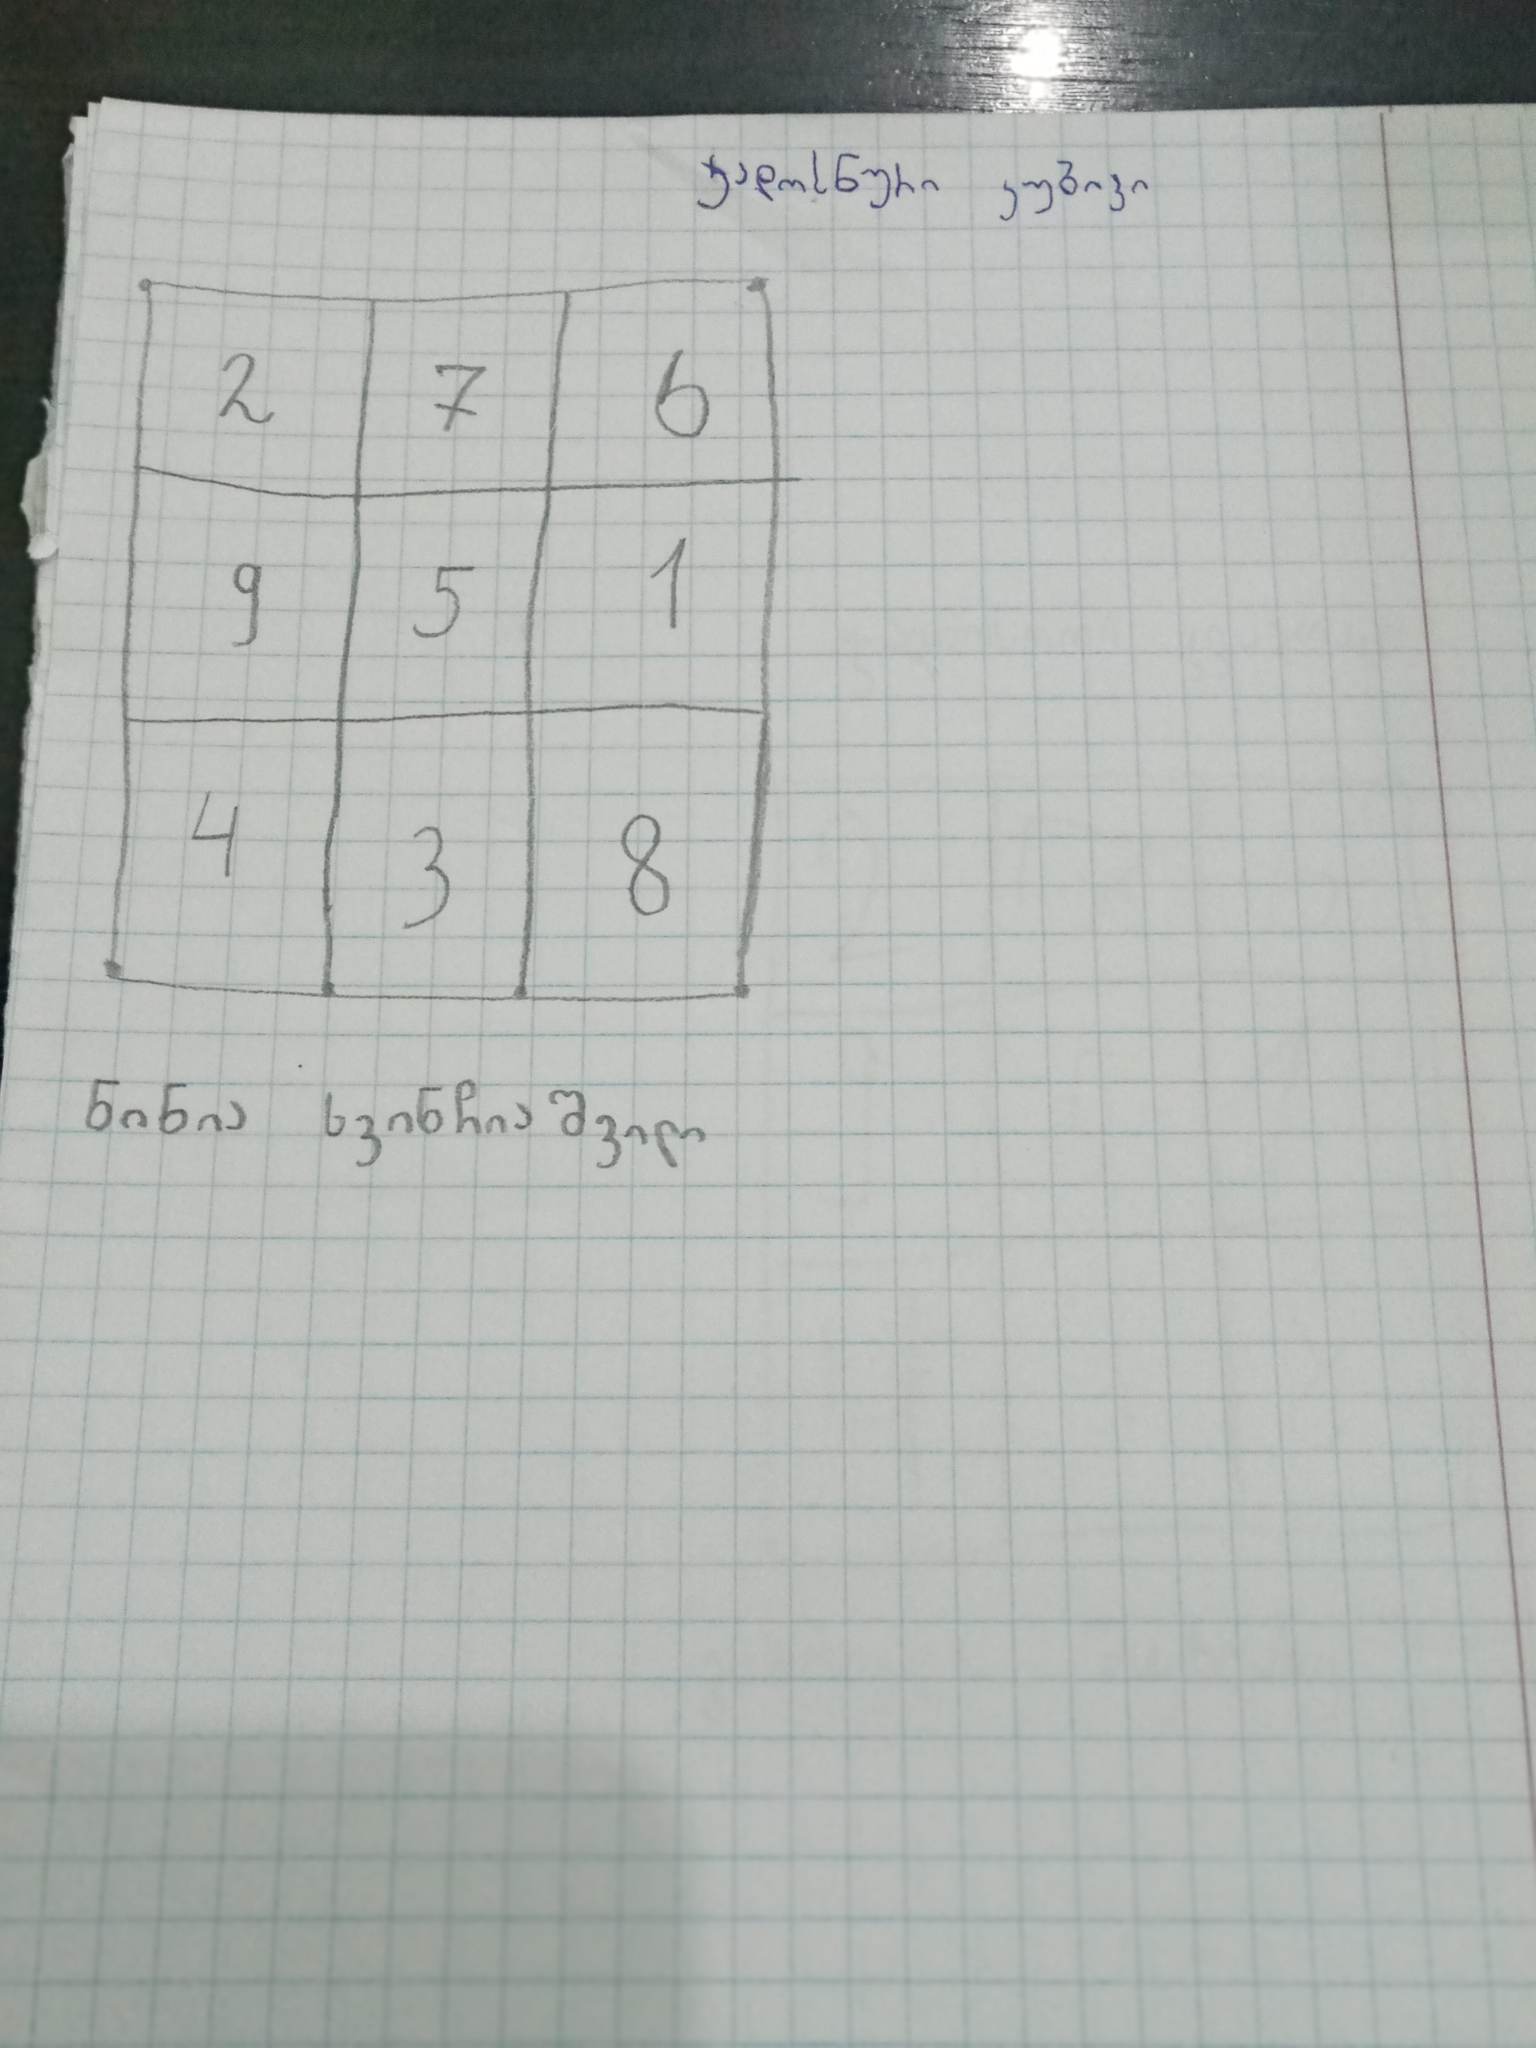 ჯადოსნური კუბიკი
2 7 6
9 5 1
4 3 8
ნინია სვინჩიაშვილი